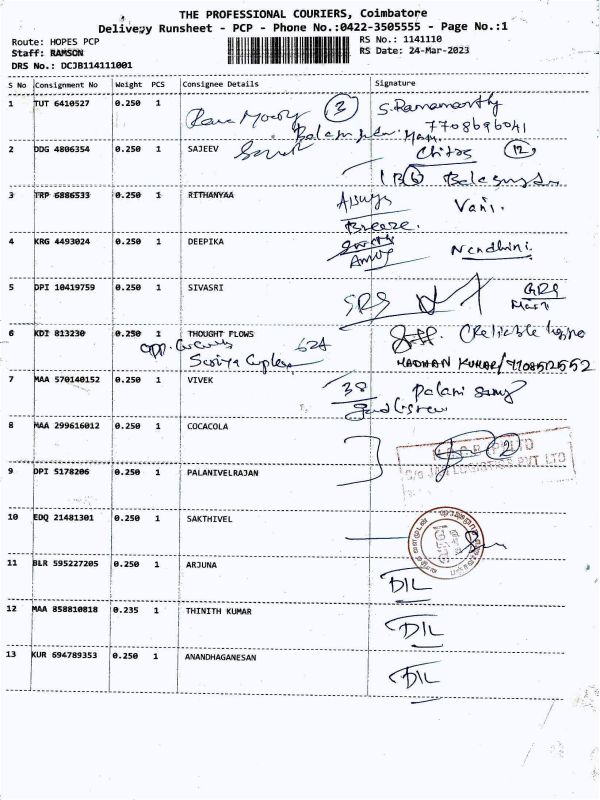 THE PROFESSIONAL COURIERS, Coimbatore
Delivery Runsheet - PCP - Phone No.:0422-3505555 - Page No.:1
Route: HOPES PCP
Staff: RAMSON
DRS No.: DCJB114111001
RS No.: 1141110
RS Date: 24-Mar-2023
S No Consignment No Weight PCS Consignee Details Signature
1 TUT 6410527 0.250 1
3 S. Ramamoorthy
7708696041
2 DDG 4806354 0.250 1 SAJEEV
12
3 TRP 6886533 0.250 1 RITHANYAA
Vani.
Breeze.
4 KRG 4493024 0.250 1 DEEPIKA
Nandhini.
5 DPI 10419759 0.250 1 SIVASRI
SRS
6 KDI 813230 0.250 1 THOUGHT FLOWS
Suriya Complex
MADHAN KUMAR/7708512552
7 MAA 570140152 0.250 1 VIVEK
38 Palani Samy
8 MAA 299616012 0.250 1 COCACOLA
2
9 DPI 5178206 0.250 1 PALANIVELRAJAN
LOGISTICS PVT LTD
10 EDQ 21481301 0.250 1 SAKTHIVEL
11 BLR 595227205 0.250 1 ARJUNA
DIL
12 MAA 858810818 0.235 1 THINITH KUMAR
DIL
13 KUR 694789353 0.250 1 ANANDHAGANESAN
DIL